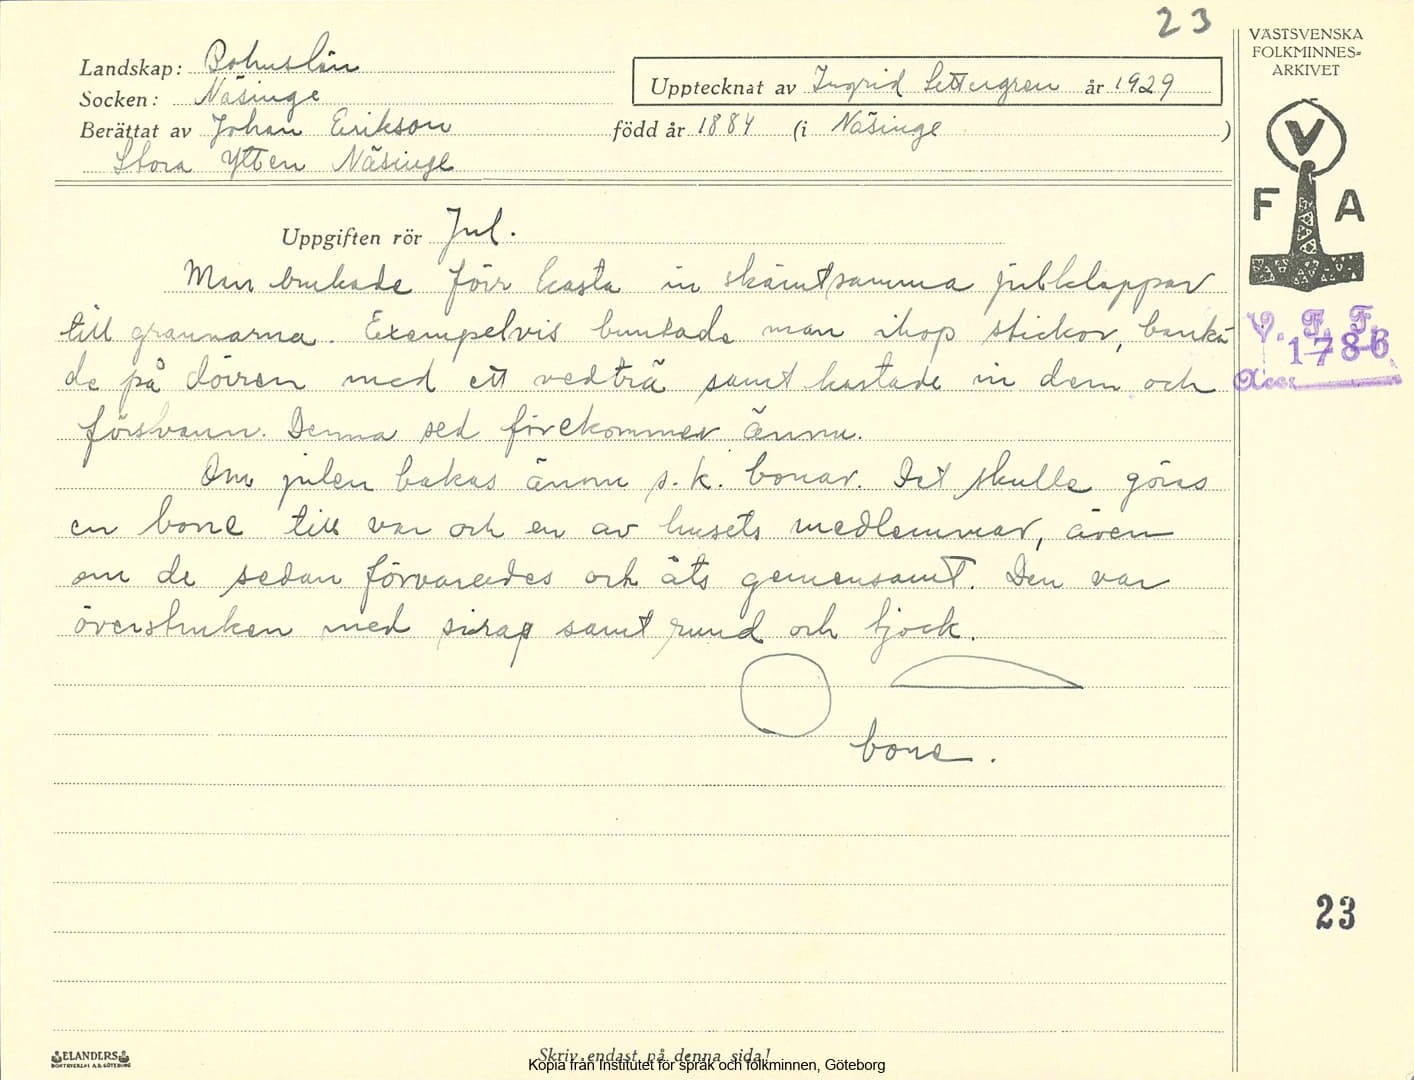 23
Landskap: Bohuslän
Socken: Näsinge
Berättat av Johan Erikson
Stora Ytten Näsinge
Upptecknat av Ingrid Settergren år 1929
född år 1884 (i Näsinge )
VÄSTSVENSKA
FOLKMINNES=
ARKIVET
V
F A
Uppgiften rör Jul.
Man brukade förr kasta in skämtsamma julklappar
till grannarna. Exempelvis buntade man ihop stickor, banka
de på dörren med ett vedträ samt kastade in dem och
försvann. Denna sed förekommer ännu.
Om julen bakas ännu s.k. bonar. Det skulle göras
en bone till var och en av husets medlemmar, även
om de sedan förvarades och åts gemensamt. Den var
överstruken med sirap samt rund och tjock.
bone.
V. F. F.
1786
Acc:
23
ELANDERS
BOKTRYCKERI A.B. GÖTEBORG
Skriv endast på denna sida!
Kopia från Institutet för språk och folkminnen, Göteborg